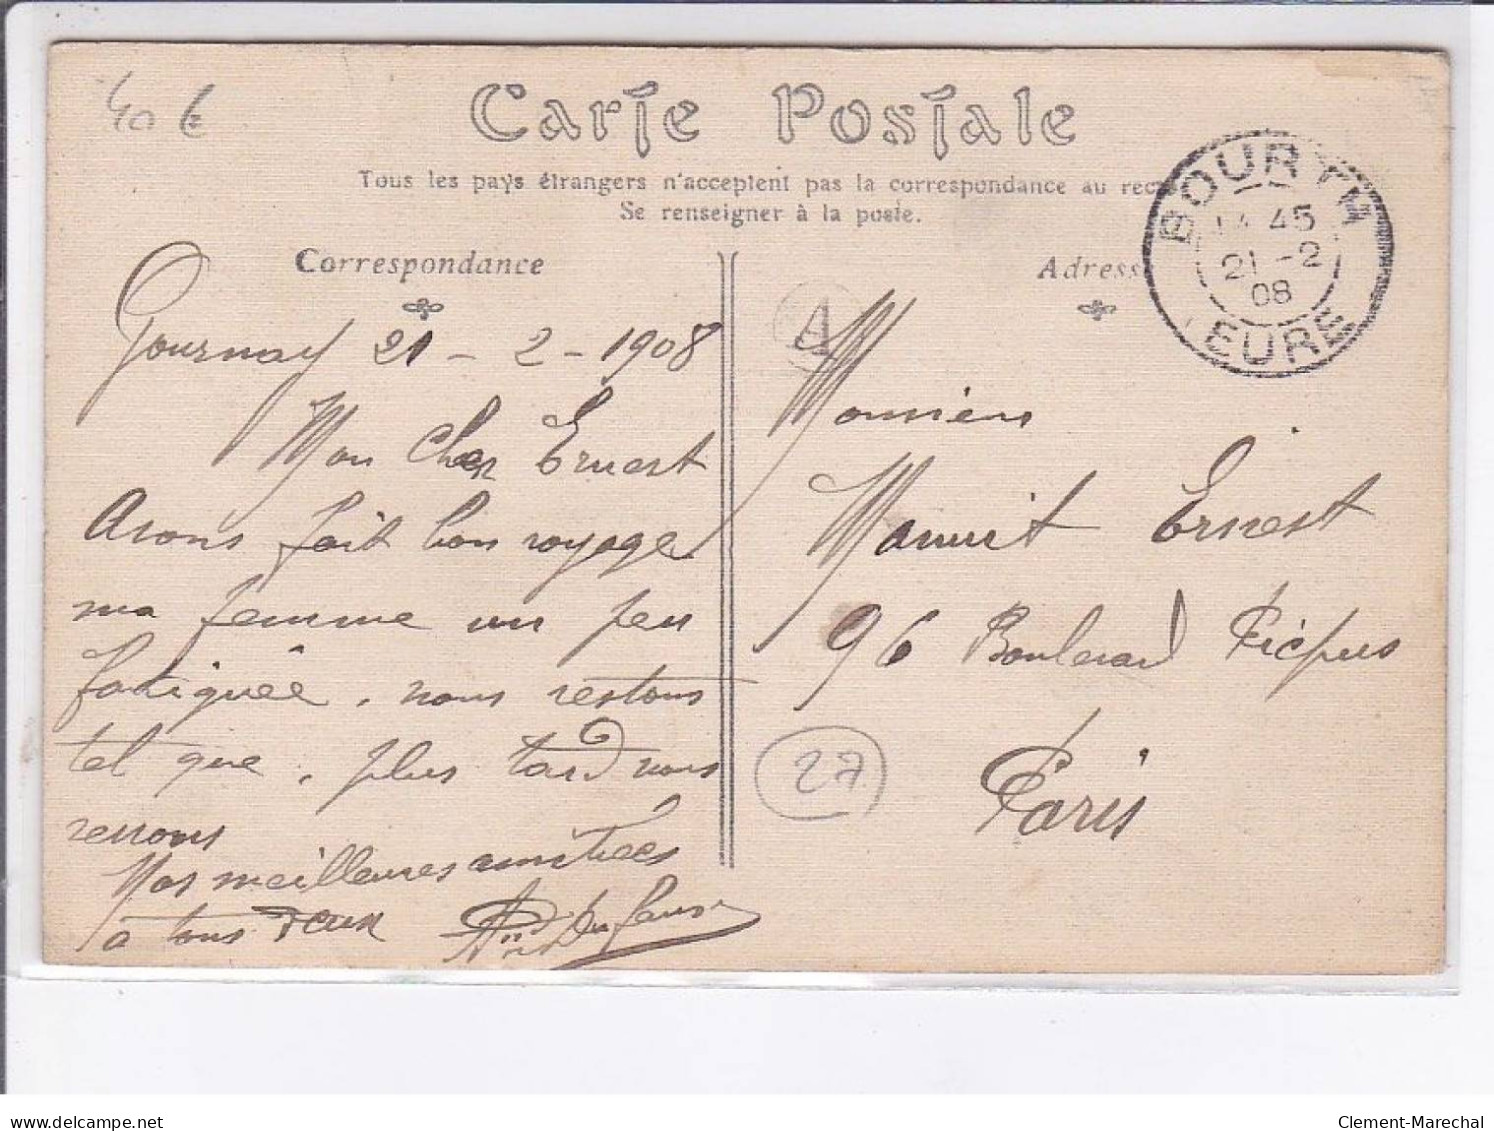 40 €
Carte Postale
Tous les pays étrangers n'acceptent pas la correspondance au rec
Se renseigner à la poste.
BOURTH
45
21 -2
08
EURE
Correspondance
Adress
A
Gournay 21 - 2 - 1908
Mon Cher Ernest
Avons fait bon voyage
ma femme un peu
fatiguée, nous restons
tel que, plus tard nous
verrons
Nos meilleures amitiées
à tous deux
Monsieur
Ernest
96 Boulevard Picpus
Paris
27
delcampe.net
Clement-Marechal